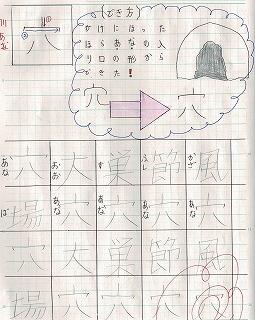 穴
あな
(でき方)
がけにほった
ほらあなの入
り口の形から
できた!
穴
かざあな
風穴風穴
ふしあな
節穴節穴
すあな
巣穴巣穴
おおあな
大穴大穴
あなば
穴場穴場